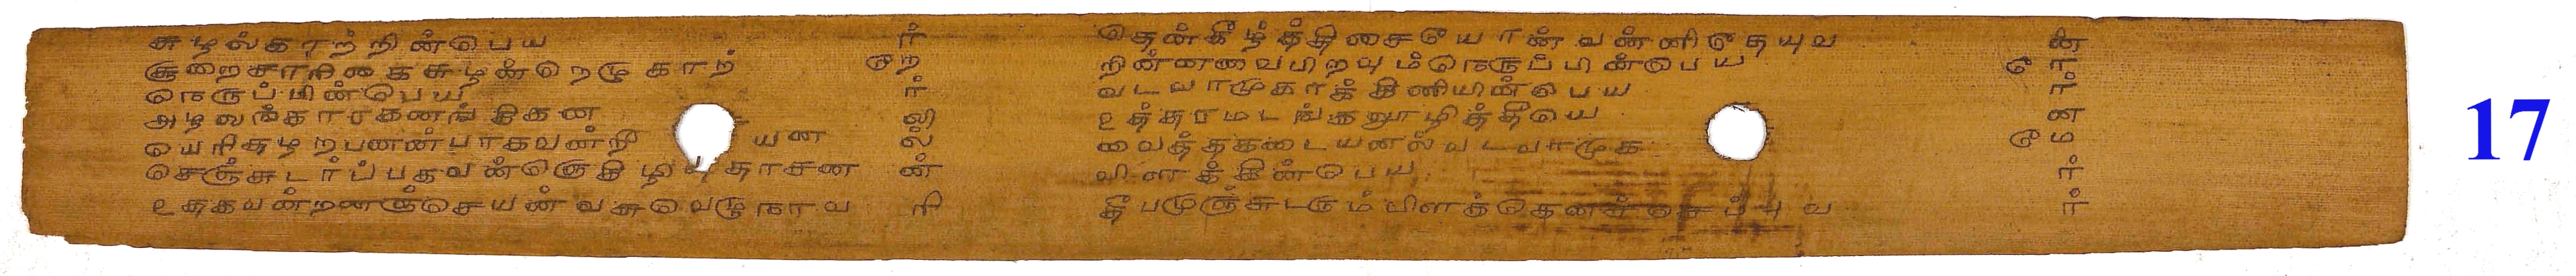 சுழல்காற்றின்பெய ர்
சூறைசாரிகைசுழன்றெழுகாற் றே
நெருப்பின்பெய ர்
அழலங்காரகனங்கிகன லி
யெரிதழற்பணன்பாகவன்றீ யன ல்
செஞ்சுடர்ப்பகவன்தெகிழிவுதாசன ன்
உதகவன்றனஞ்செயன்வசுவெடுநாவ ரி
தென்கீழ்த்திசையோன்வன்னிதேயுவ ன்
நின்னவைபிறவும்நெருப்பின்பெய ரே
வடவாமுகாக்கினியின்பெய ர்
உத்தரமடங்கலூழித்தீயெ ன
வைத்தகடையனல்வடவாமுக மே
விளக்கின்பெய ர்
தீபமுஞ்சுடரும்விளக்கெனச்செப்புவ ர்
17